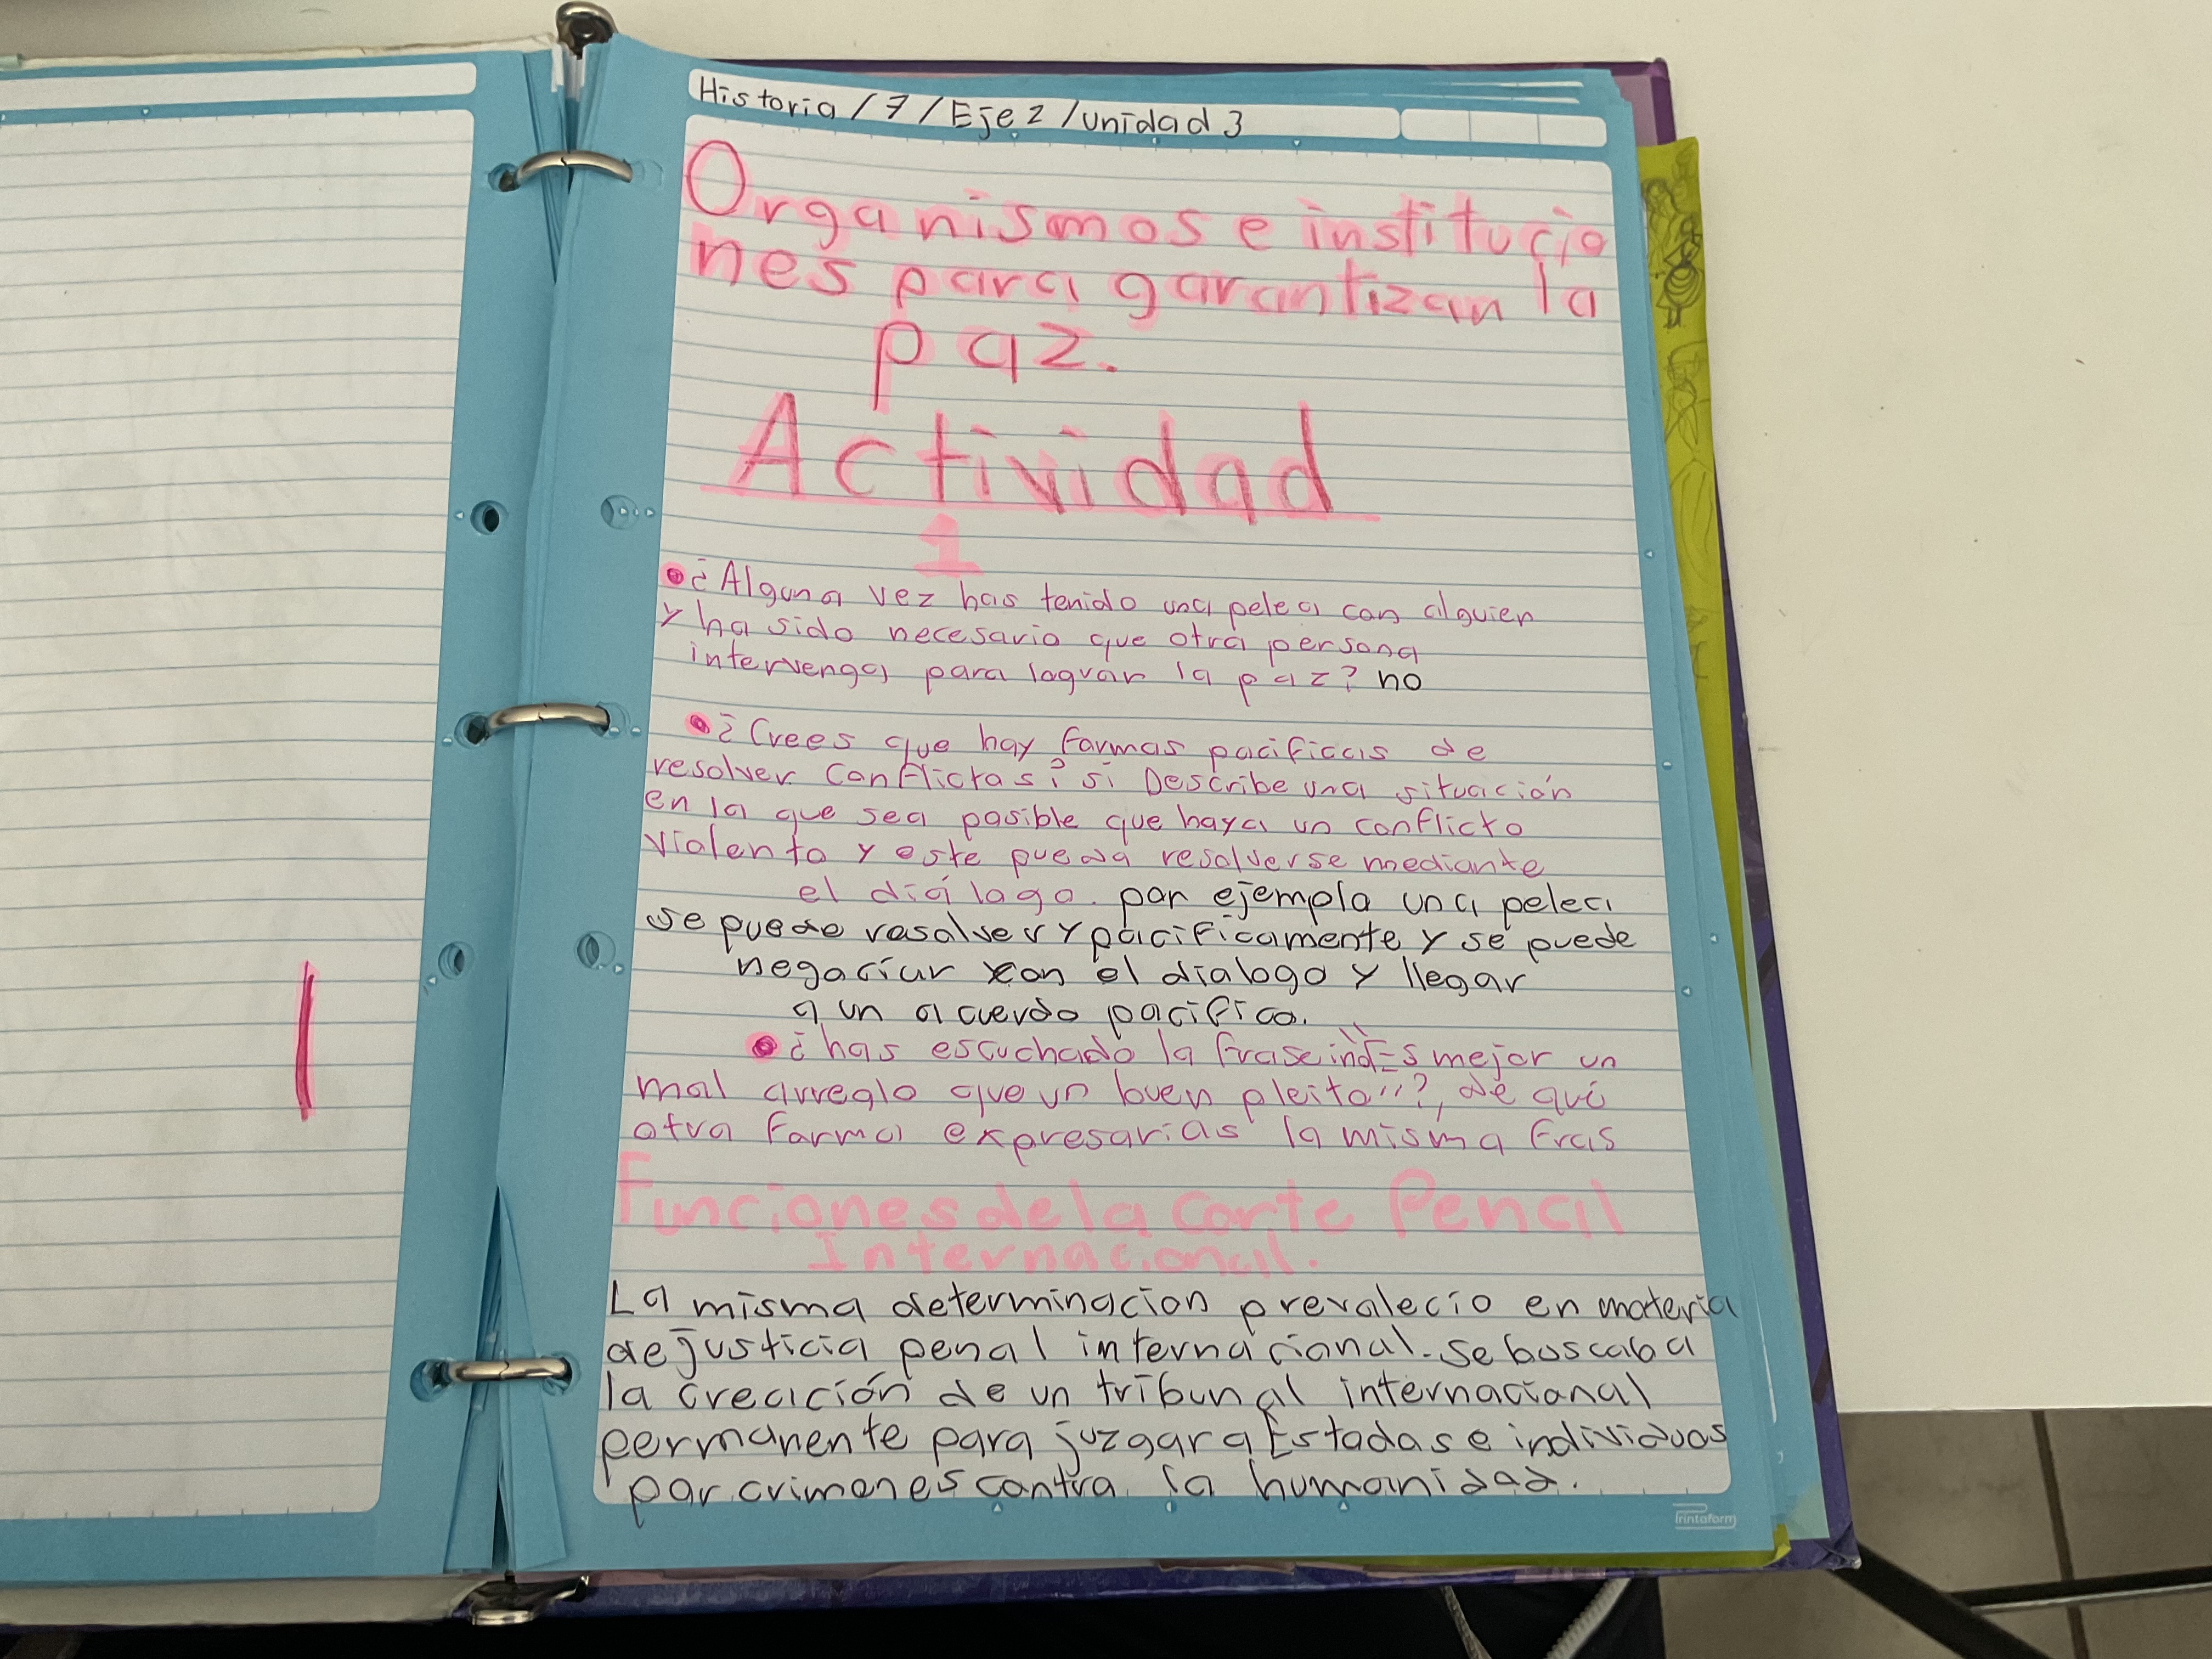 Historia / 7 / Eje 2 / unidad 3
Organismos e institucio
nes para garantizan la
paz.
Actividad
1
¿Alguna vez has tenido una pelea con alguien
y ha sido necesario que otra persona
intervenga para lograr la paz? no
¿Crees que hay formas pacificas de
resolver conflictos? si Describe una situación
en la que sea posible que haya un conflicto
violento y este pueda resolverse mediante
el diálogo. por ejemplo una pelea
se puede resolver y pacificamente y se puede
negociar con el dialogo y llegar
a un acuerdo pacifico.
¿has escuchado la frase "Es mejor un
mal arreglo que un buen pleito"?, de qué
otra forma expresarias la misma fras
Funciones de la Corte Penal
Internacional.
La misma determinacion prevalecio en materia
de justicia penal internacional. se buscaba
la creación de un tribunal internacional
permanente para juzgar a Estados e individuos
por crimenes contra la humanidad.
Printaform